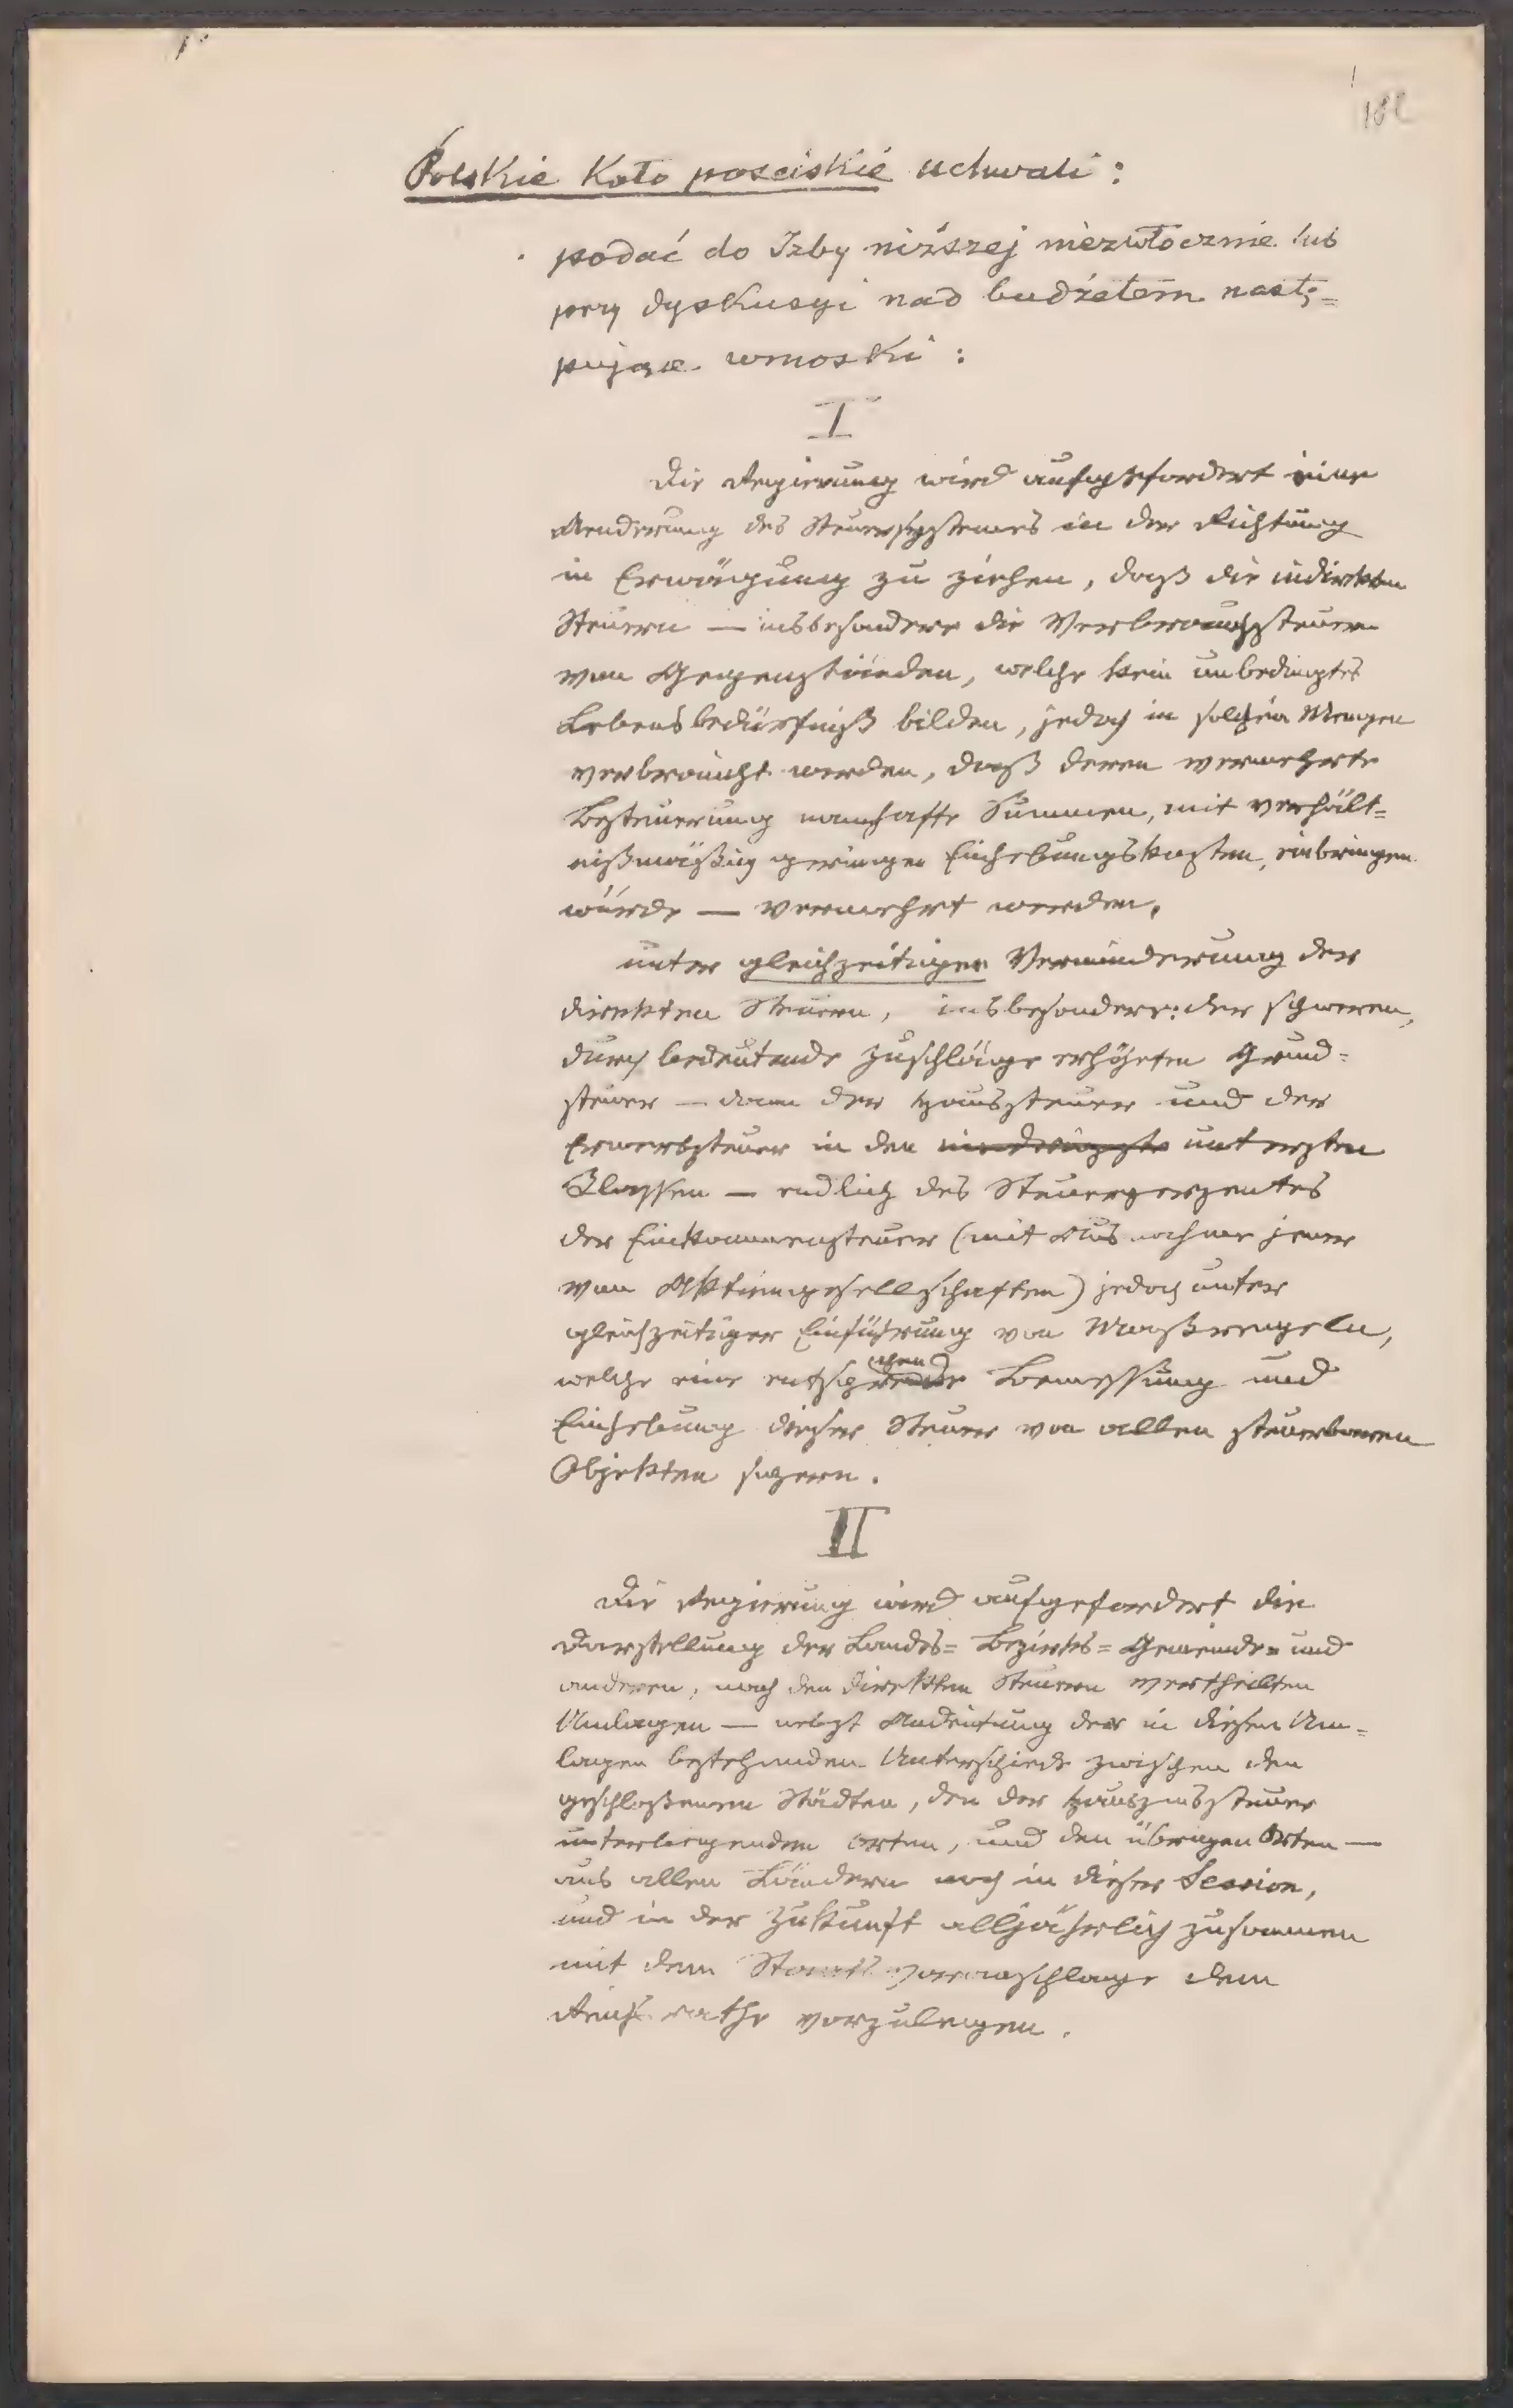 182
Polskie Koło poselskie uchwali:
podać do Izby niższej niezwłocznie lub
przy dyskusyi nad budżetem nastę=
pujące wnioski:
I
Die Regierung wird aufgefordert eine
Aenderung des Steuersystemes in der Richtung
in Erwägung zu ziehen, daß die indirekten
Steuern — insbesondere die Verbrauchssteuern
von Gegenständen, welche kein unbedingtes
Lebensbedürfniß bilden, jedoch in solchen Mengen
verbraucht werden, daß deren vermehrte
Besteuerung namhafte Summen, mit verhält=
nißmäßig geringen Einhebungskosten, einbringen
würde — vermehrt werden,
unter gleichzeitiger Verminderung der
direkten Steuern, insbesondere: der schweren,
durch bedeutende Zuschläge erhöhten Grund=
steuer — dann der Haussteuer und der
Erwerbsteuer in den untersten
Klassen — endlich des Steuerperzentes
der Einkommensteuer (mit Ausnahme jener
von Aktiengesellschaften) jedoch unter
gleichzeitiger Einführung von Maßregeln,
welche eine entsprechende Bemessung und
Einhebung dieser Steuer von allen steuerbaren
Objekten sichern.
II
Die Regierung wird aufgefordert die
Darstellung der Landes= Bezirks= Gemeinde= und
anderen, nach den direkten Steuern vertheilten
Umlagen — nebst Andeutung der in diesen Um=
lagen bestehenden Unterschiede zwischen den
geschloßenen Städten, den der Hauszinssteuer
unterliegenden Orten, und den übrigen Orten —
aus allen Ländern noch in dieser Session,
und in der Zukunft alljährlich zusammen
mit dem Staatsvoranschlage dem
Reichsrathe vorzulegen.